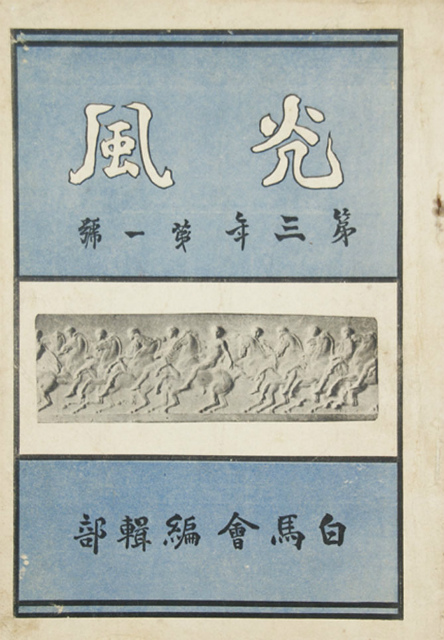 光風
第三年第一號
白馬會編輯部